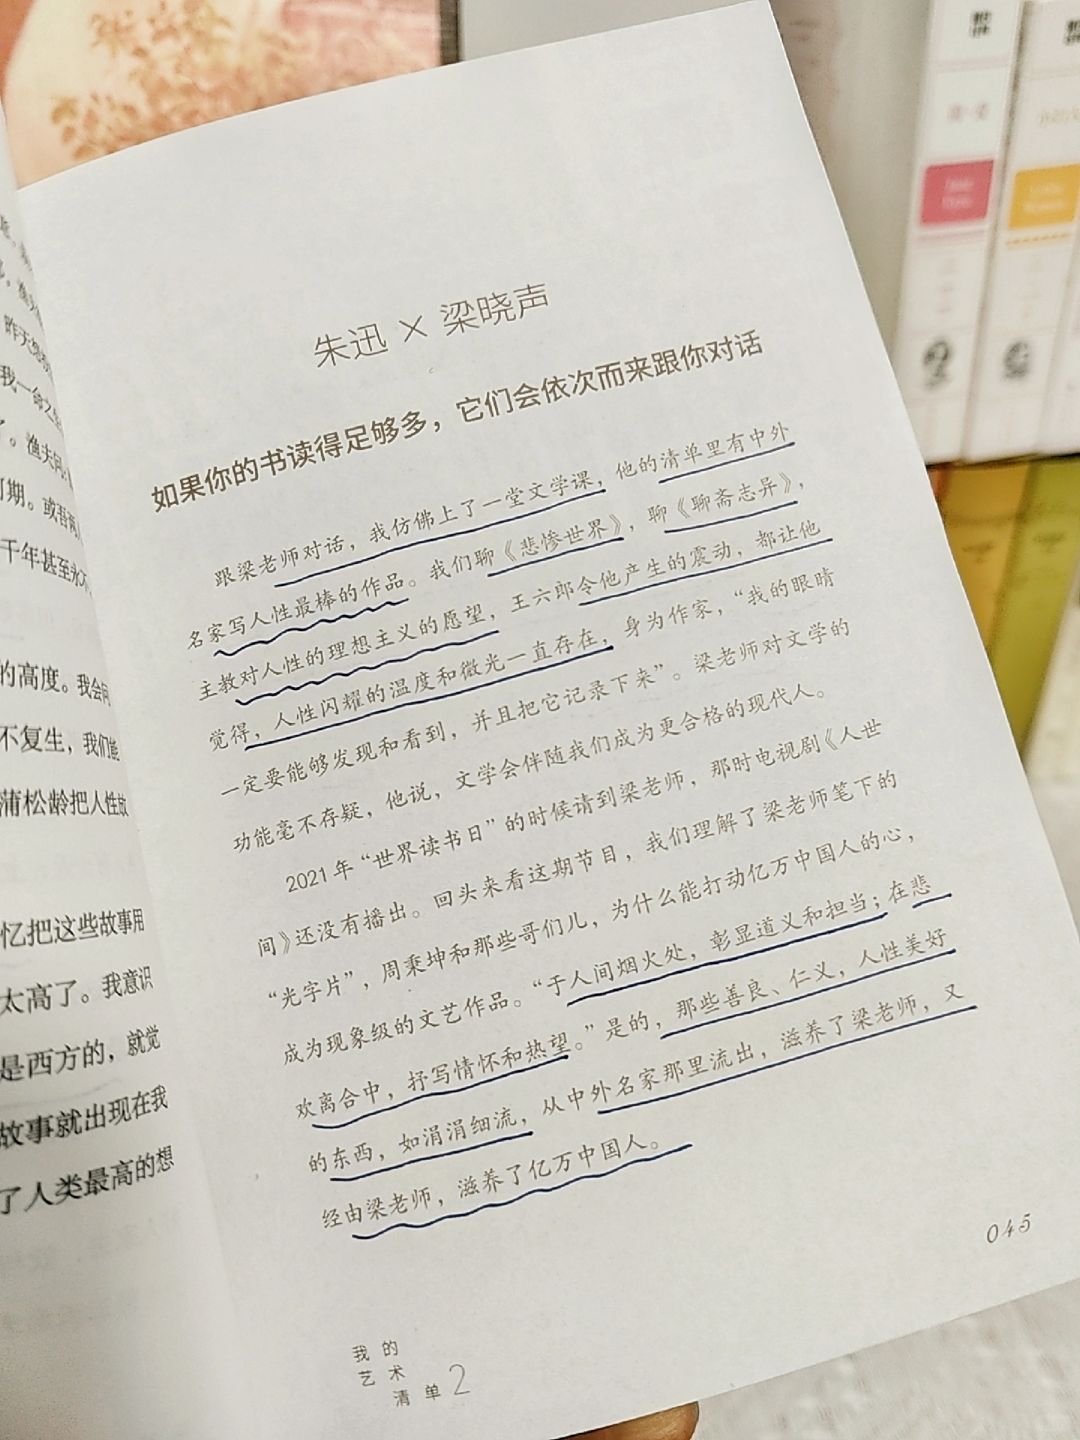 昨天
我一命之
了。渔夫问
可期。或吾两
千年甚至永不
的高度。我会问
不复生，我们能
蒲松龄把人性放
忆把这些故事用
太高了。我意识
是西方的，就觉
故事就出现在我
了人类最高的想
朱迅 × 梁晓声
如果你的书读得足够多，它们会依次而来跟你对话
跟梁老师对话，我仿佛上了一堂文学课，他的清单里有中外
名家写人性最棒的作品。我们聊《悲惨世界》，聊《聊斋志异》，
主教对人性的理想主义的愿望，王六郎令他产生的震动，都让他
觉得，人性闪耀的温度和微光一直存在，身为作家，“我的眼睛
一定要能够发现和看到，并且把它记录下来”。梁老师对文学的
功能毫不存疑，他说，文学会伴随我们成为更合格的现代人。
2021年“世界读书日”的时候请到梁老师，那时电视剧《人世
间》还没有播出。回头来看这期节目，我们理解了梁老师笔下的
“光字片”，周秉坤和那些哥们儿，为什么能打动亿万中国人的心，
成为现象级的文艺作品。“于人间烟火处，彰显道义和担当；在悲
欢离合中，抒写情怀和热望。”是的，那些善良、仁义，人性美好
的东西，如涓涓细流，从中外名家那里流出，滋养了梁老师，又
经由梁老师，滋养了亿万中国人。
045
我的
艺术
清单2